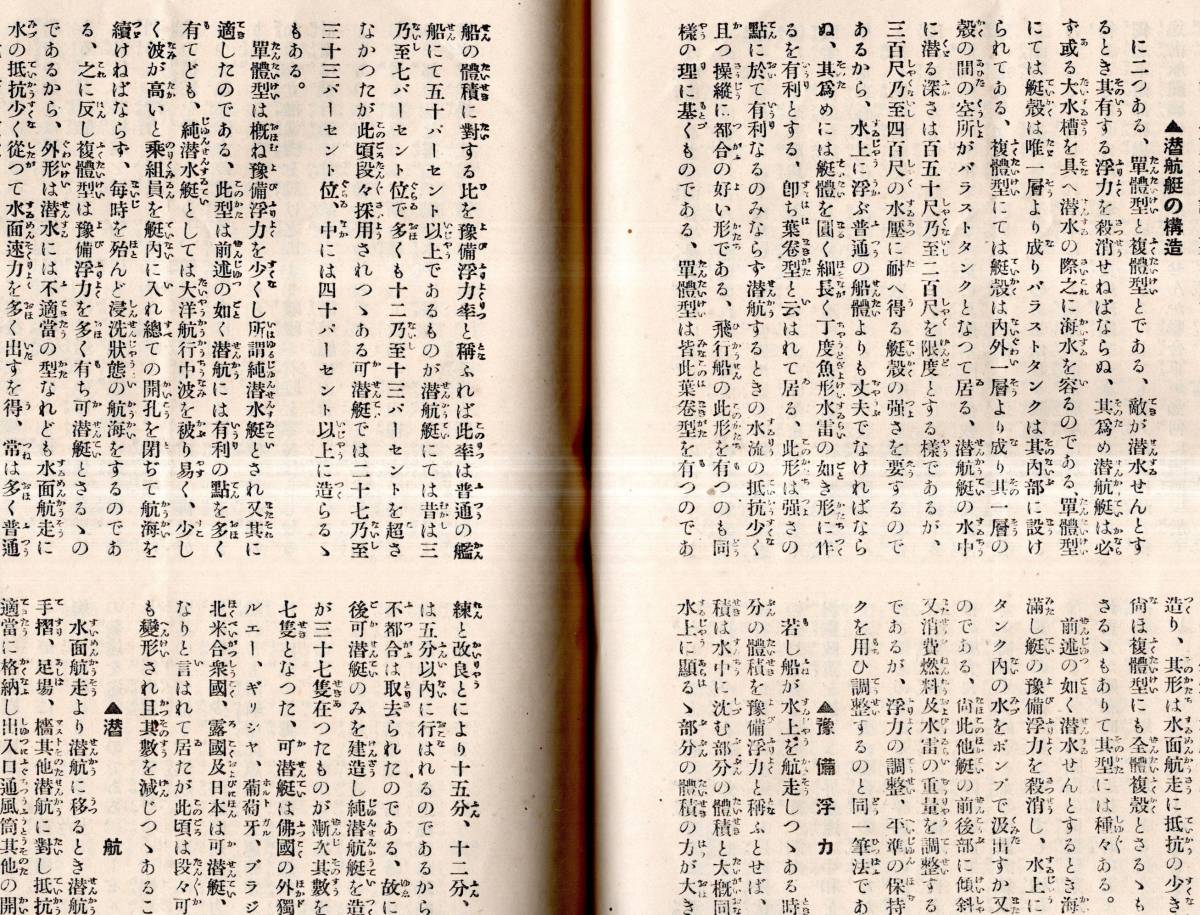 ▲潜航艇の構造
に二つある、單體型と複體型とである、敵が潜水せんとす
るとき其有する浮力を殺消せねばならぬ、其爲め潜航艇は必
ず或る大水槽を具へ潜水の際之に海水を容るのである、單體型
にては艇殼は唯一層より成りバラストタンクは其內部に設け
られてある、複體型にては艇殼は內外一層より成り其一層の
殼の間の空所がバラストタンクとなつて居る、潜航艇の水中
に潜る深さは百五十尺乃至二百尺を限度とする樣であるが、
三百尺乃至四百尺の水壓に耐へ得る艇殼の强さを要するので
あるから、水上に浮ぶ普通の船體よりも丈夫でなければなら
ぬ、其爲めには艇體を圓く細長く丁度魚形水雷の如き形に作
るを有利とする、卽ち葉卷型と云はれて居る、此形は强さの
點に於て有利なるのみならず潜航するときの水流の抵抗少く
且つ操縱に都合の好い形である、飛行船の此形を有つのも同
樣の理に基くものである、單體型は皆此葉卷型を有つのであ
造り、其形は水面航走に抵抗の少き
尙ほ複體型にも全體複殼とさるゝも
さるゝもありて其型には種々ある。
前述の如く潜水せんとするとき海
滿し艇の豫備浮力を殺消し、水上に
タンク內の水をポンプで汲出すか又
のである、尙此他艇の前後部に傾斜
又消費燃料及水雷の重量を調整する
であるが、浮力の調整、平準の保持
クを用ひ調整するのと同一筆法であ
▲豫備浮力
若し船が水上を航走しつゝある時
分の體積を豫備浮力と稱ふとせば、
積は水中に沈む部分の體積と大槪同
水上に顯るゝ部分の體積の方が大き
船の體積に對する比を豫備浮力率と稱ふれば此率は普通の艦
船にて五十パーセント以上であるものが潜航艇にては昔は三
乃至七パーセント位で多くも十二乃至十三パーセントを超さ
なかつたが此頃段々採用されつゝある可潜艇では二十七乃至
三十三パーセント位、中には四十パーセント以上に造らるゝ
もある。
單體型は概ね豫備浮力を少くし所謂純潜水艇とされ又其に
適したのである、此型は前述の如く潜航には有利の點を多く
有てども、純潜水艇としては大洋航行中波を被り易く、少し
く波が高いと乘組員を艇內に入れ總ての開孔を閉ぢて航海を
續けねばならず、每時を殆んど浸洗狀態の航海をするのであ
る、之に反し複體型は豫備浮力を多く有ち可潜艇とさるゝの
であるから、外形は潜水には不適當の型なれども水面航走に
水の抵抗少く從つて水面速力を多く出すを得、常は多く普通
練と改良とにより十五分、十二分、
は五分以內に行れるのであるから
不都合は取去られたのである、故に
後可潜艇のみを建造し純潜航艇を造
が三十七隻在つたものが漸次其數を
七隻となつた、可潜艇は佛國の外獨
ルエー、ギリシヤ、葡萄牙、ブラジ
北米合衆國、露國及日本は可潜艇、
なりと言はれて居たが此頃は段々可
も變形され且其數を減じつゝあるこ
▲潜航
水面航走より潜航に移るとき潜航
手摺、足場、檣其他潜航に對し抵抗
適當に格納し出入口通風筒其他の開